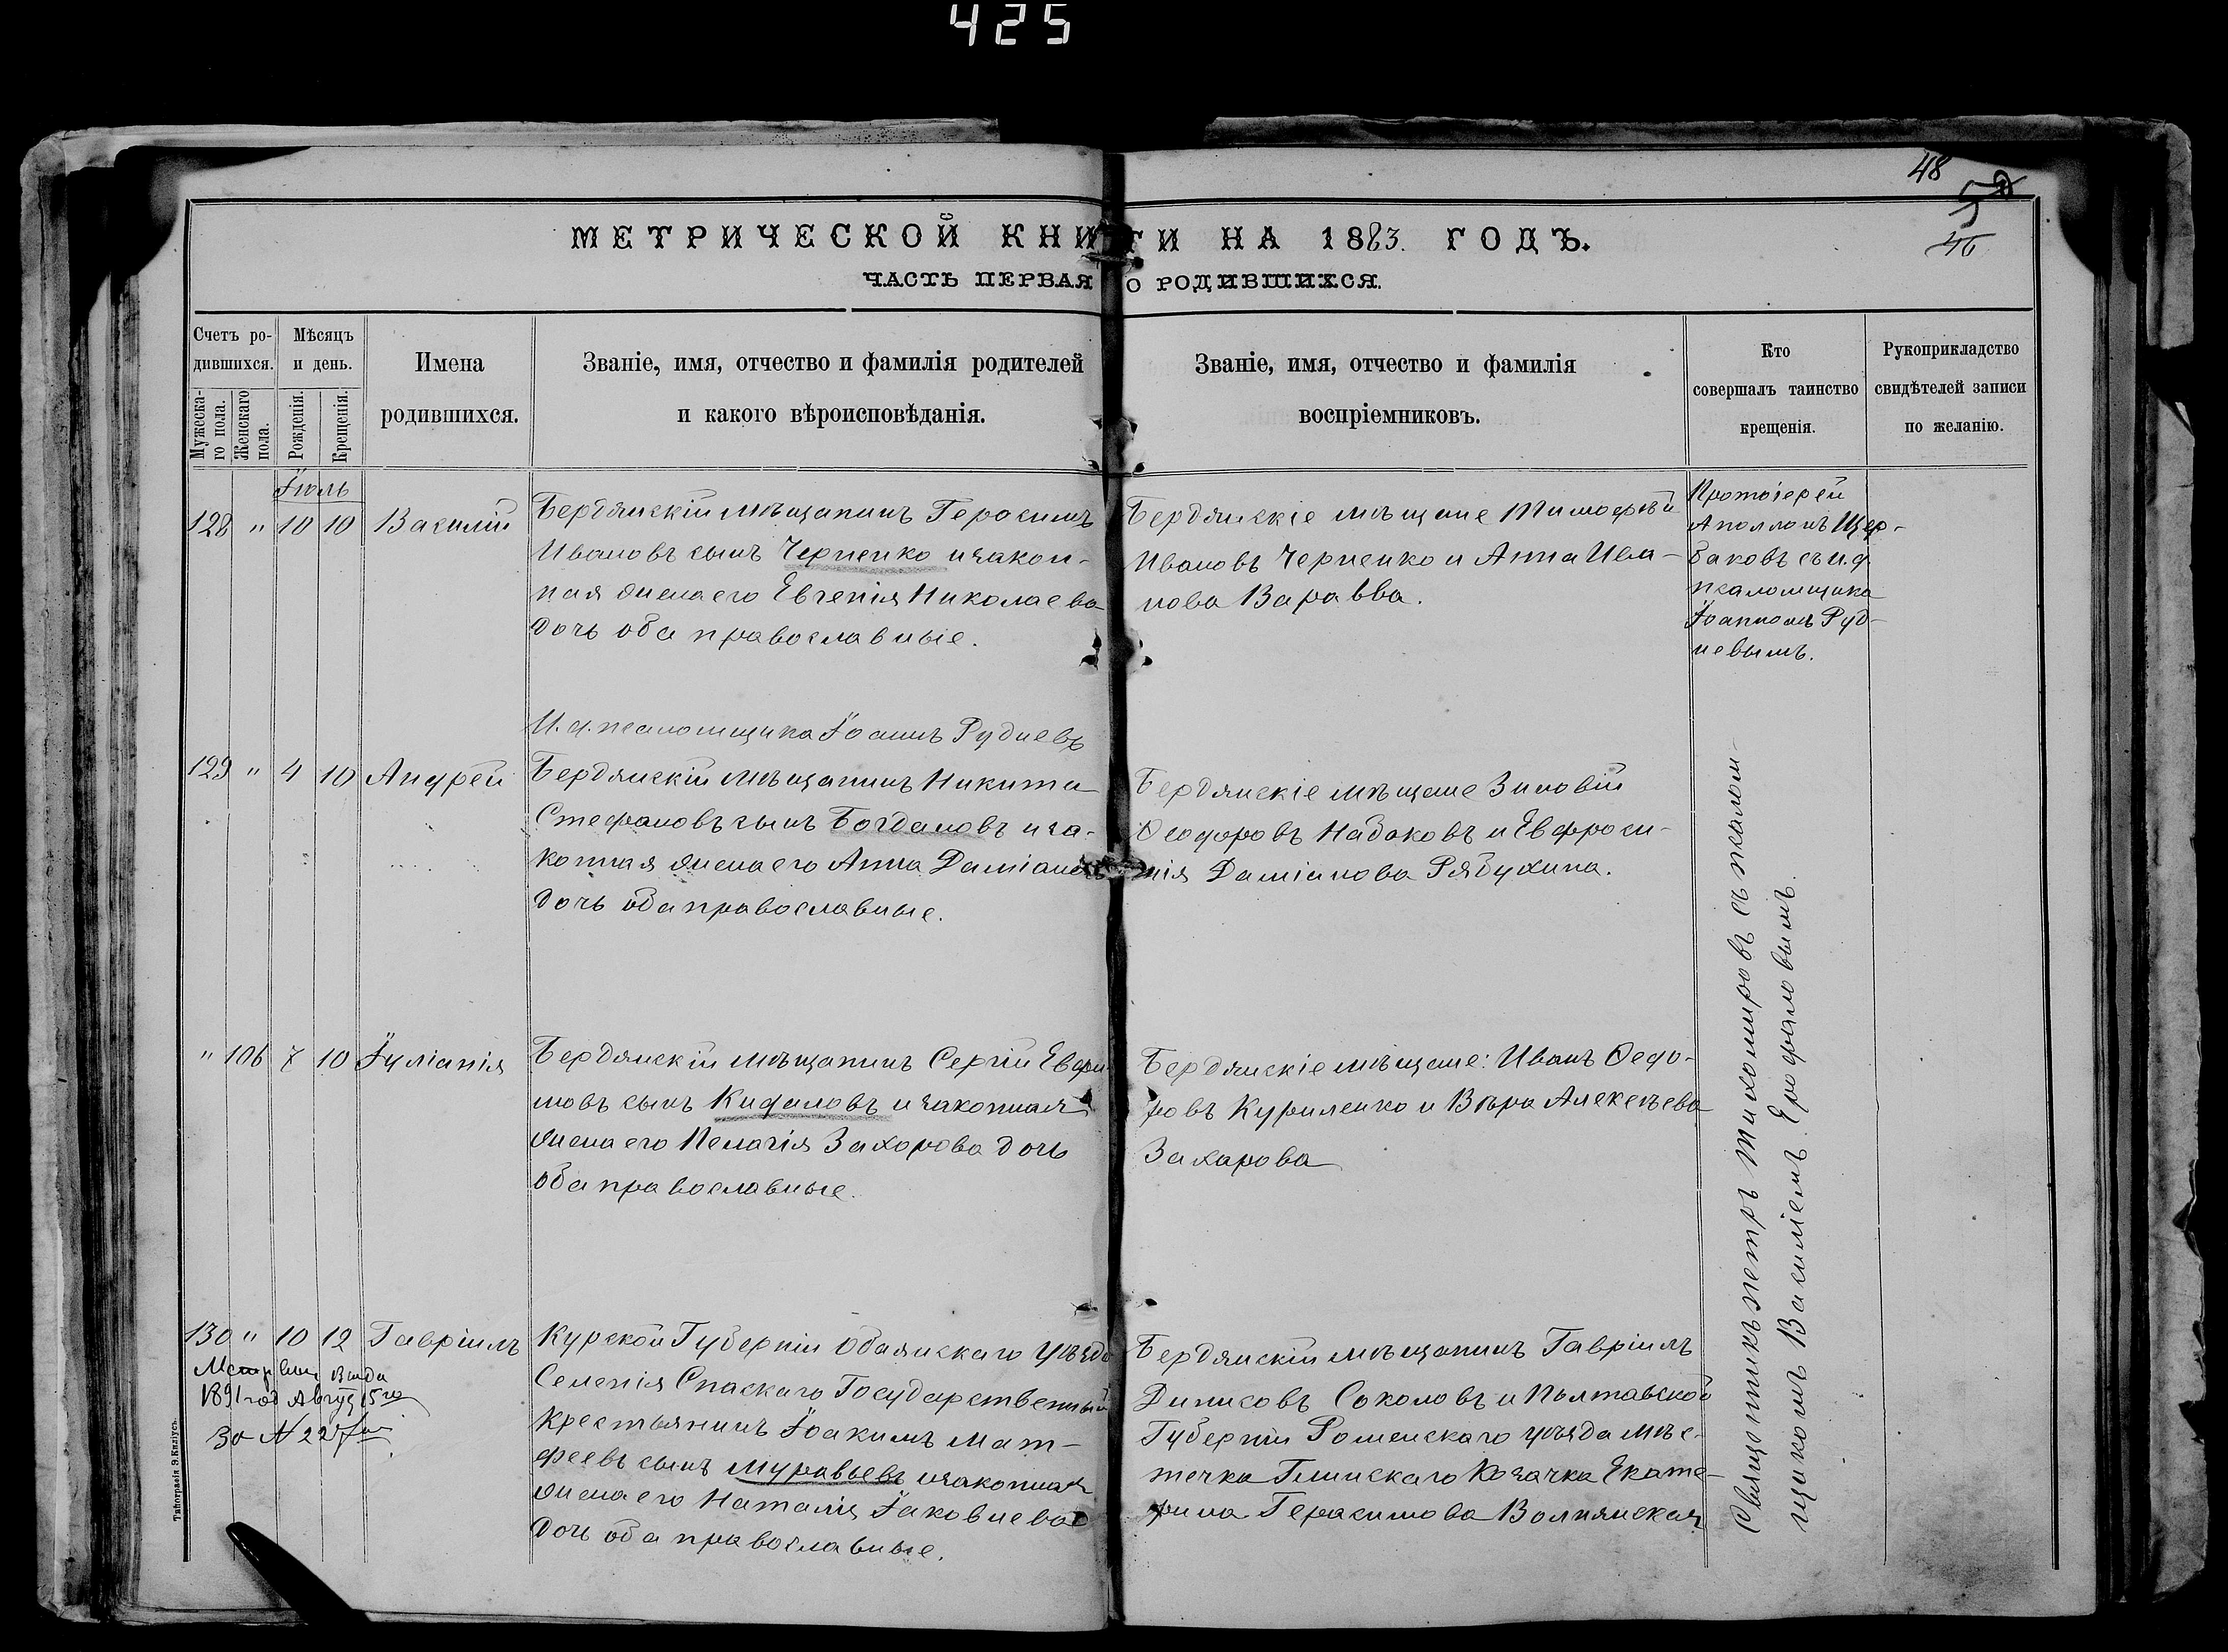 425
48
46
МЕТРИЧЕСКОЙ КНИГИ НА 1883. ГОДЪ.
ЧАСТЬ ПЕРВАЯ О РОДИВШИХСЯ.
Счетъ ро-
дившихся.
Мужеска-
го пола.
Женскаго
пола.
Мѣсяцъ
и день.
Рожденія.
Крещенія.
Имена
родившихся.
Званіе, имя, отчество и фамилія родителей
и какого вѣроисповѣданія.
Званіе, имя, отчество и фамилія
воспріемниковъ.
Кто
совершалъ таинство
крещенія.
Рукоприкладство
свидѣтелей записи
по желанію.
Іюль
128 " 10 10 Василій
Бердянскій мѣщанинъ Герасимъ
Ивановъ сынъ Черненко и закон-
ная жена его Евгенія Николаева
дочь оба православные.
Бердянскіе мѣщане Тимофѣй
Ивановъ Черненко и Анна Ива-
нова Варавва.
Протоіерей
Аполлонъ Щер-
баковъ съ и.д.
псаломщика
Іоанномъ Руд-
невымъ.
И.д. псаломщика Іоаннъ Рудневъ
129 " 4 10 Андрей
Бердянскій мѣщанинъ Никита
Стефановъ сынъ Богдановъ и за-
конная жена его Анна Даміанова
дочь оба православные.
Бердянскіе мѣщане Зиновій
Ѳеодоровъ Набоковъ и Евфроси-
нія Даміанова Рябухина.
" 106 7 10 Іуліанія
Бердянскій мѣщанинъ Сергій Евфи-
мовъ сынъ Кифаловъ и законная
жена его Пелагія Захарова дочь
оба православные.
Бердянскіе мѣщане: Иванъ Ѳедо-
ровъ Куриленко и Вѣра Алексѣева
Захарова
130 " 10 12 Гавріилъ
1891 год Август 15го
за № 227
Курской Губерніи Обаянскаго уѣзда
Селенія Спаскаго Государственный
крестьянинъ Іоакимъ Мат-
феевъ сынъ Муравьевъ и законная
жена его Наталія Іаковлева
дочь оба православные.
Бердянскій мѣщанинъ Гавріилъ
Динисовъ Соколовъ и Полтавской
Губерніи Роменскаго уѣзда мѣс-
течка Глинскаго Козачка Екате-
рина Герасимова Волнянская
Священникъ Петръ Тихомировъ съ псалом-
щикомъ Василіемъ Ерофаловымъ.
Типографія Э. Килусъ.